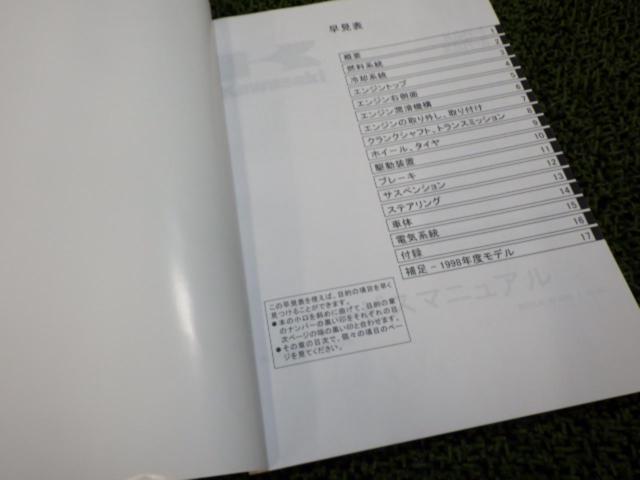 早見表
概要 1
燃料系統 2
冷却系統 3
エンジントップ 4
エンジン右側面 5
エンジン潤滑機構 6
エンジンの取り外し、取り付け 7
クランクシャフト、トランスミッション 8
ホイール、タイヤ 9
駆動装置 10
ブレーキ 11
サスペンション 12
ステアリング 13
車体 14
電気系統 15
付録 16
補足－1998年度モデル 17
この早見表を使えば、目的の項目を早く
見つけることができます。
●本の小口を斜めに曲げて、目的の章
のナンバーの黒い印をそれぞれの目
次ページの端の黒い印と合わせます。
●その章の目次で、個々の項目のペー
ジを見てください。
スマニュアル